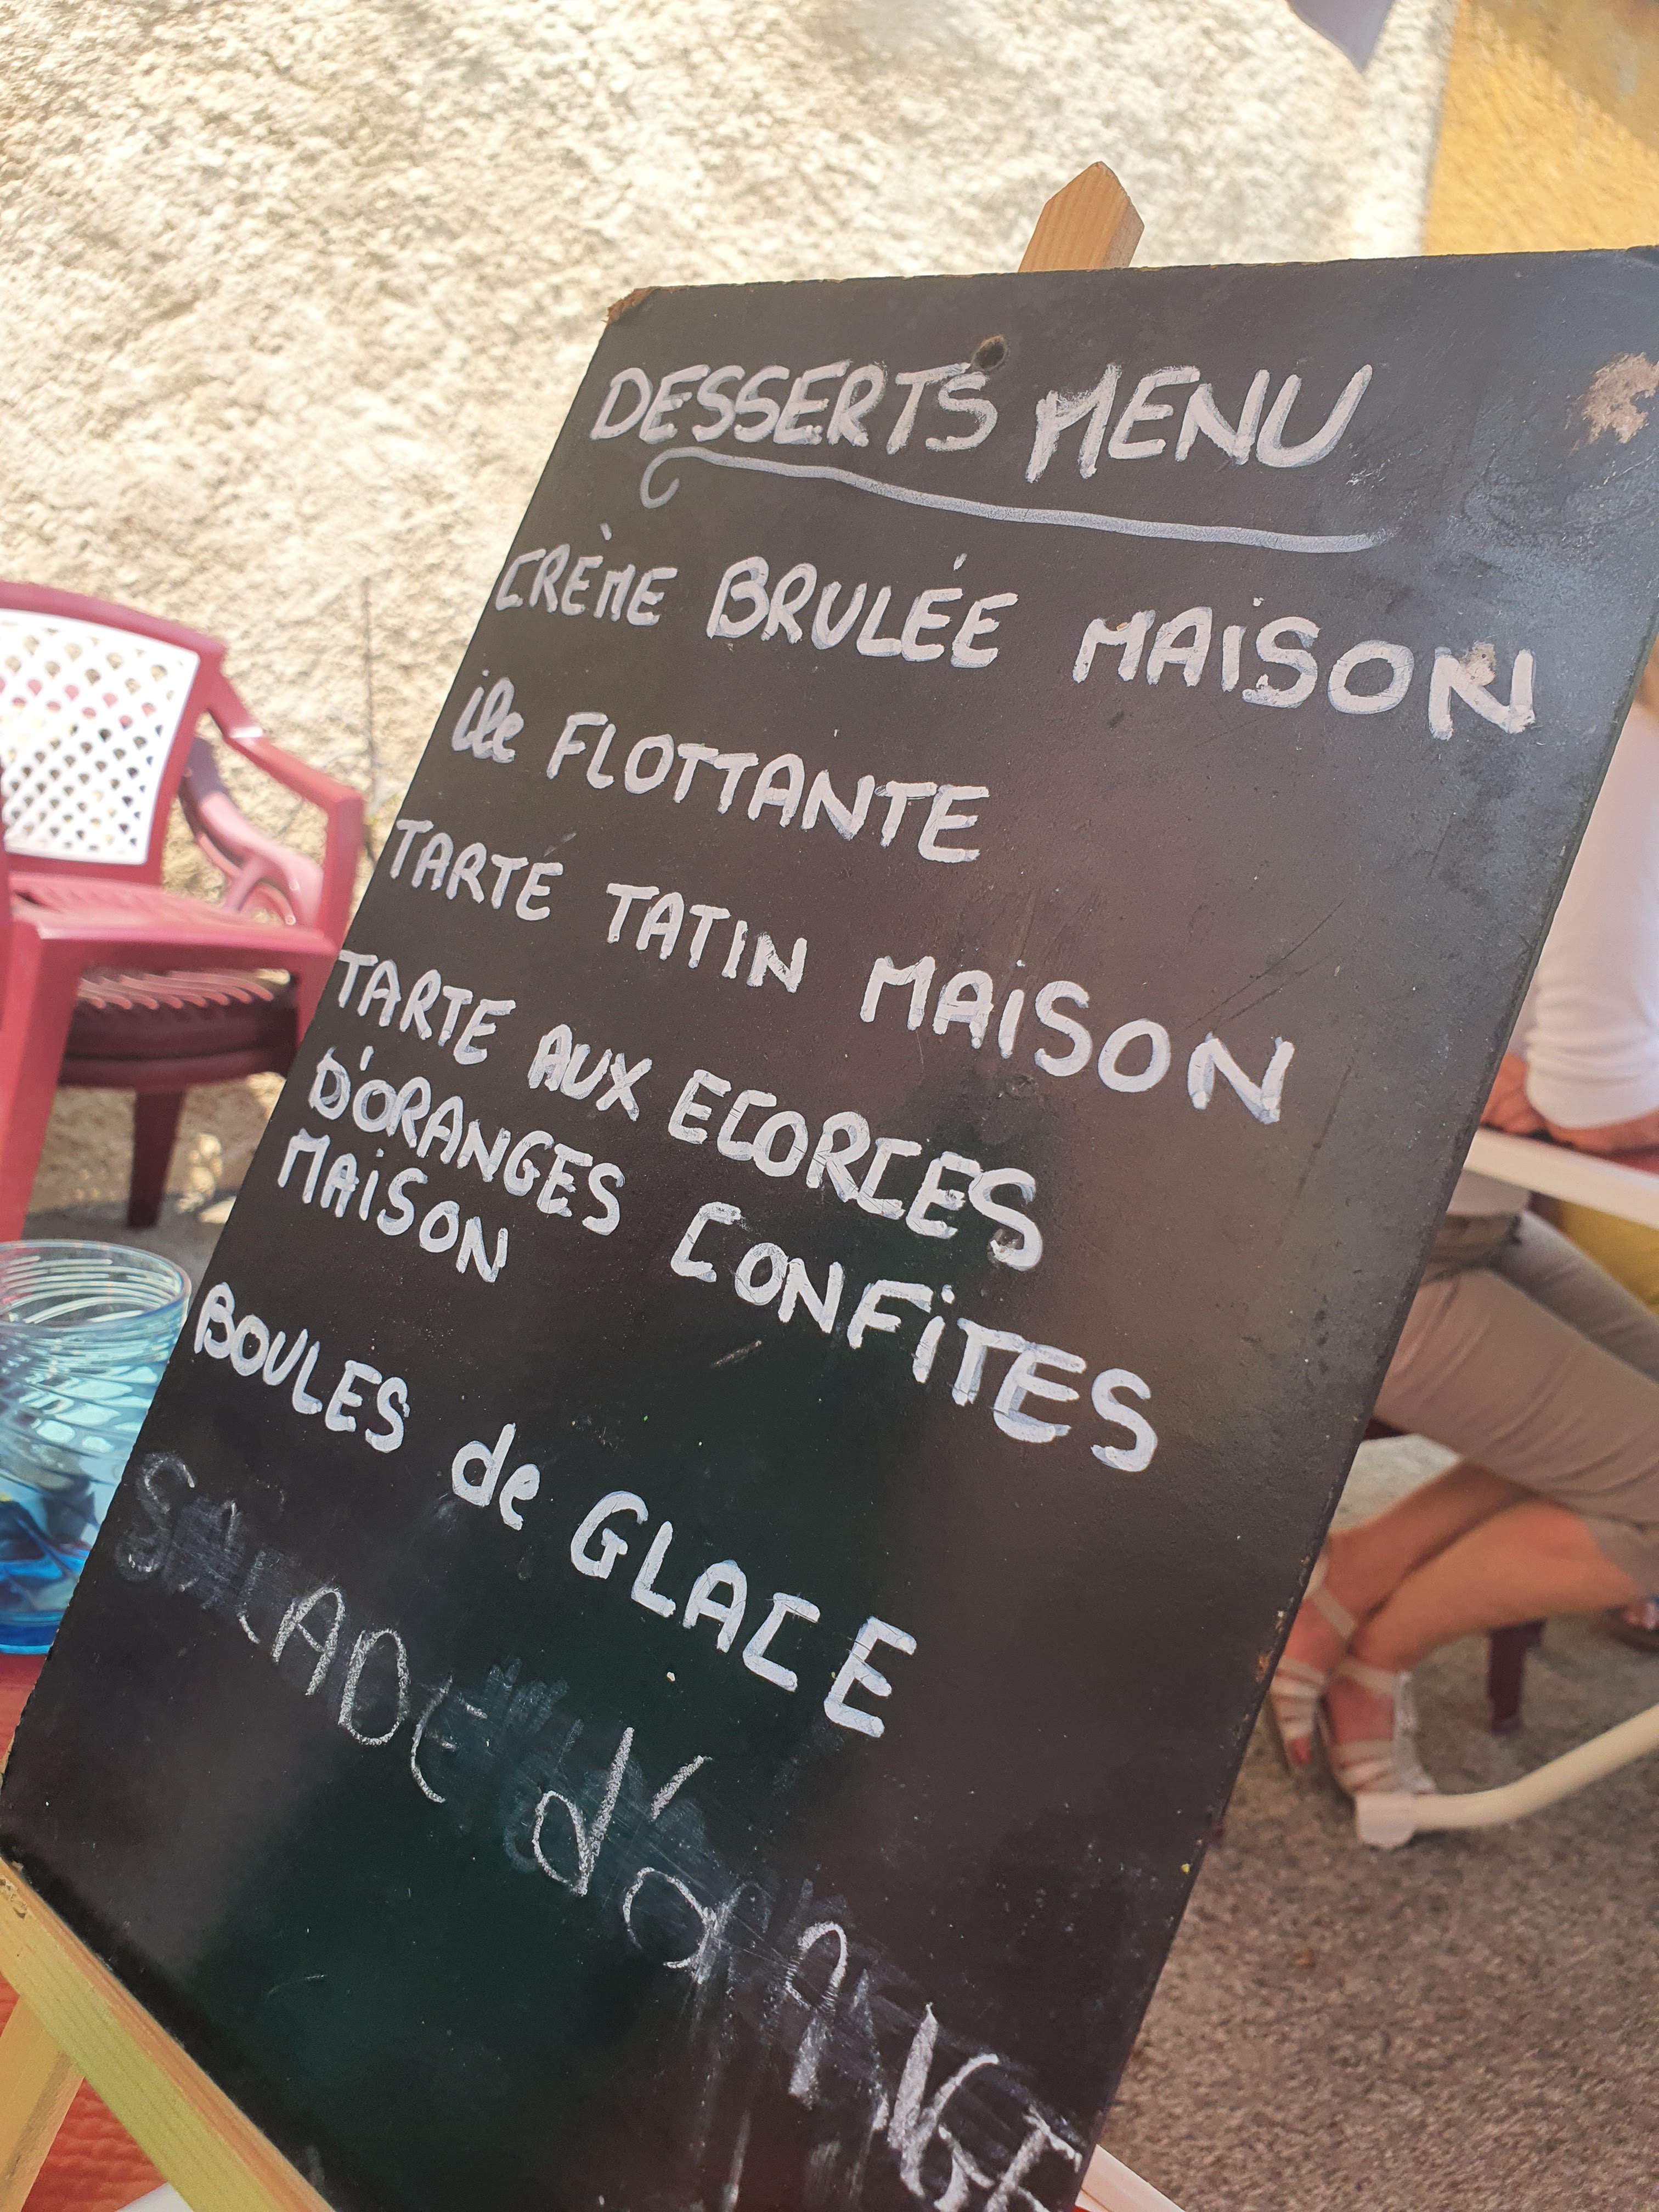 DESSERTS MENU
CRÈME BRULÉE MAISON
ile FLOTTANTE
TARTE TATIN MAISON
TARTE AUX ECORCES
D'ORANGES CONFITES
MAISON
BOULES de GLACE
SALADE d'orANGE